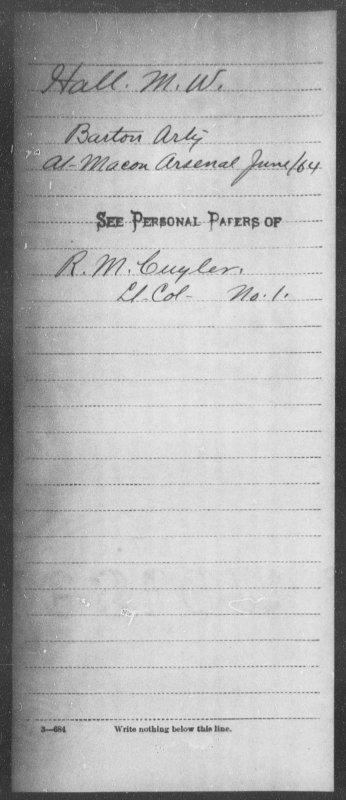 Hall. M. W.
Barton Arty
At Macon Arsenal June/64
SEE PERSONAL PAPERS OF
R. M. Cuyler.
Lt. Col- No. 1.
3—684 Write nothing below this line.